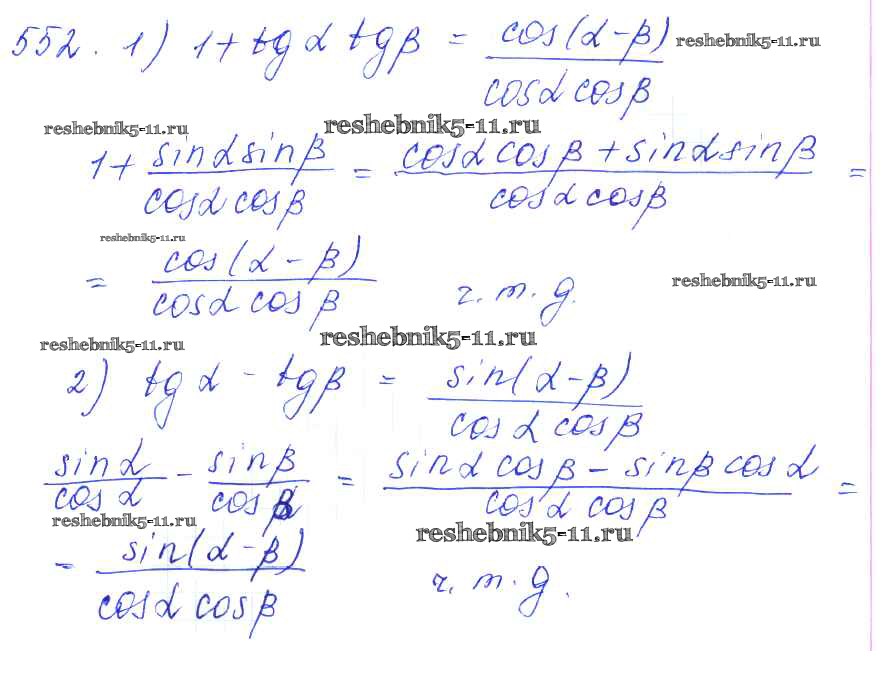 552. 1) 1 + tg α tg β = cos(α - β) / cos α cos β reshebnik5-11.ru
reshebnik5-11.ru reshebnik5-11.ru
1 + sin α sin β / cos α cos β = cos α cos β + sin α sin β / cos α cos β =
reshebnik5-11.ru
= cos(α - β) / cos α cos β ч. т. д. reshebnik5-11.ru
reshebnik5-11.ru reshebnik5-11.ru
2) tg α - tg β = sin(α - β) / cos α cos β
sin α / cos α - sin β / cos β = sin α cos β - sin β cos α / cos α cos β =
reshebnik5-11.ru reshebnik5-11.ru
= sin(α - β) / cos α cos β ч. т. д.